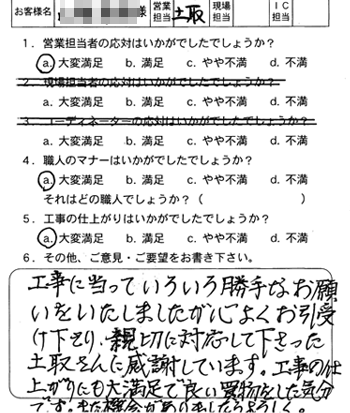 お客様名 様 営業担当 土取 現場担当 ＩＣ担当
１．営業担当者の応対はいかがでしたでしょうか？
a. 大変満足 b. 満足 c. やや不満 d. 不満
２．現場担当者の応対はいかがでしたでしょうか？
a. 大変満足 b. 満足 c. やや不満 d. 不満
３．コーディネーターの応対はいかがでしたでしょうか？
a. 大変満足 b. 満足 c. やや不満 d. 不満
４．職人のマナーはいかがでしたでしょうか？
a. 大変満足 b. 満足 c. やや不満 d. 不満
それはどの職人でしょうか？（ ）
５．工事の仕上がりはいかがでしたでしょうか？
a. 大変満足 b. 満足 c. やや不満 d. 不満
６．その他、ご意見・ご要望をお書き下さい。
工事に当っていろいろ勝手なお願
いをいたしましたが心よくお引受
け下さり、親切に対応して下さった
土取さんに感謝しています。工事の仕
上がりにも大満足で良い買物をした気分
です。また機会がありましたらよろしく。